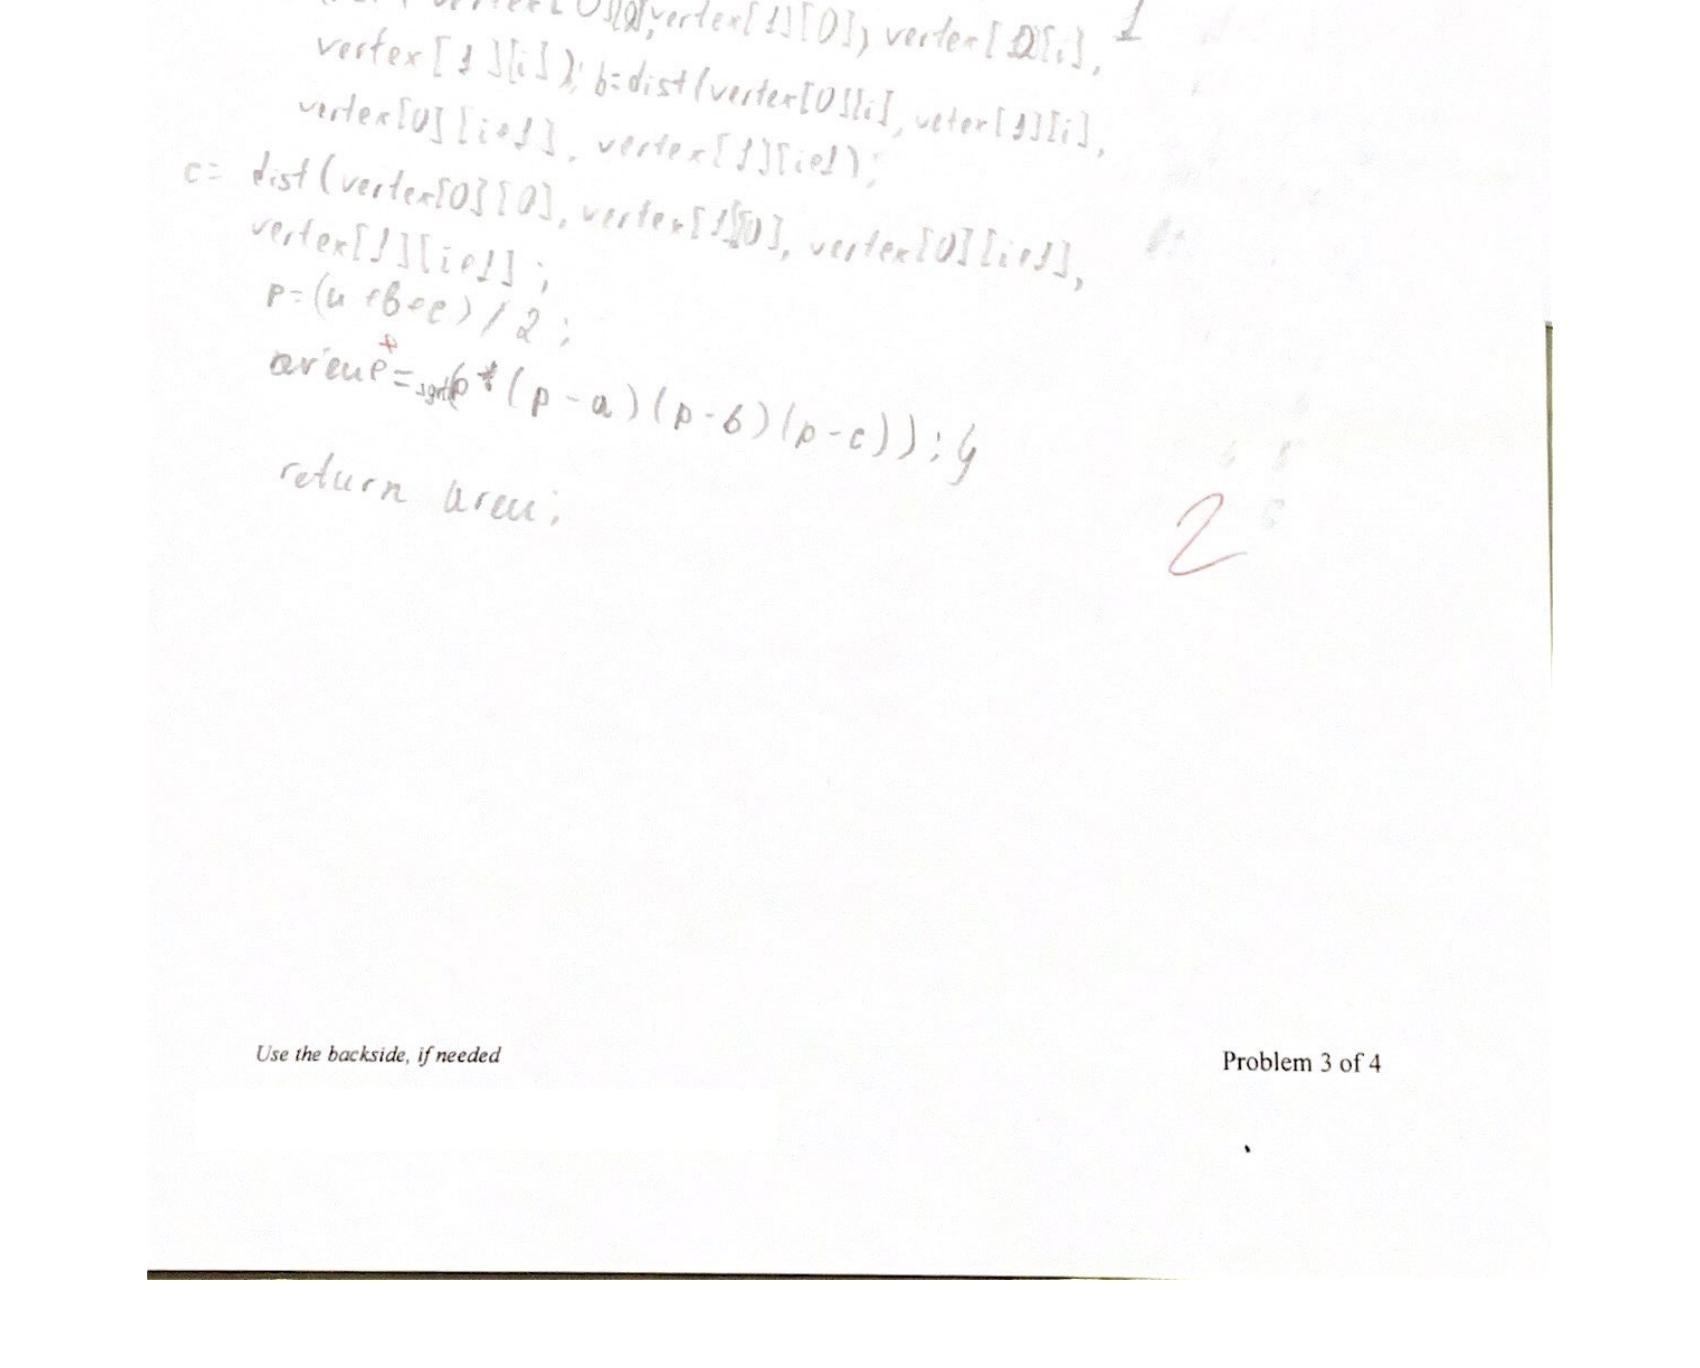 vertex[0][0], vertex[1][0], vertex[0][i], 1
vertex[1][i]); b=dist(vertex[0][i], vetex[1][i],
vertex[0][i+1], vertex[1][i+1);
c= dist(vertex[0][0], vertex[1][0], vertex[0][i+1],
vertex[1][i+1];
p=(a+b+c)/2;
+
area = sqrt(p*(p-a)(p-b)(p-c));}
return area;
2
Use the backside, if needed
Problem 3 of 4